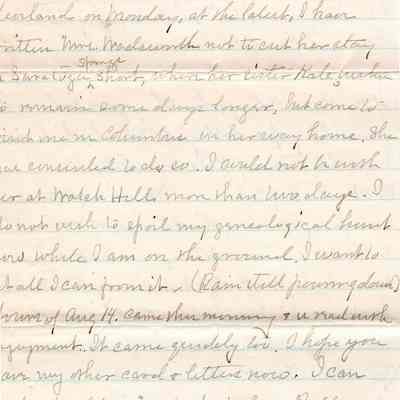 on Monday, at the latest, I have
written Mrs. Wadsworth not to cut her stay
Saratoga Springs short, when her sister Kate wishes
to remain some days longer, but come to
visit me in Columbus on her way home. She
has consented to do so. I could not be with
her at Watch Hill more than two days. I
do not wish to spoil my genealogical hunt
now while I am on the ground, I want to
get all I can from it. (Rain still pouring down)
Yours of Aug 14. came this morning & is read with
enjoyment. It came quickly too. I hope you
have my other card & letters now. I can